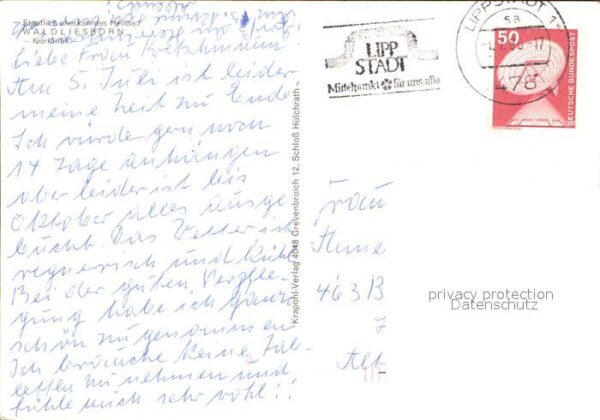 Staatlich anerkanntes Heilbad
WALDLIESBORN
Liebe Frau
Am 5. Juli ist leider
meine Zeit zu Ende.
Ich würde gern noch
14 Tage anhängen
aber leider ist bis
Oktober alles ausge
bucht. Das Wetter ist
regnerisch und kühl
Bei der guten Verpfle-
gung habe ich ganz
schön zugenommen
Ich brauche keine Tab-
letten zu nehmen und
fühle mich sehr wohl!!
Krapohl-Verlag 4048 Grevenbroich 12, Schloß Hülchrath
LIPP
STADT
Mittelpunkt für uns alle
LIPPSTADT 1
sa
478
50
DEUTSCHE BUNDESPOST
Frau
Anne
463
privacy protection
Datenschutz